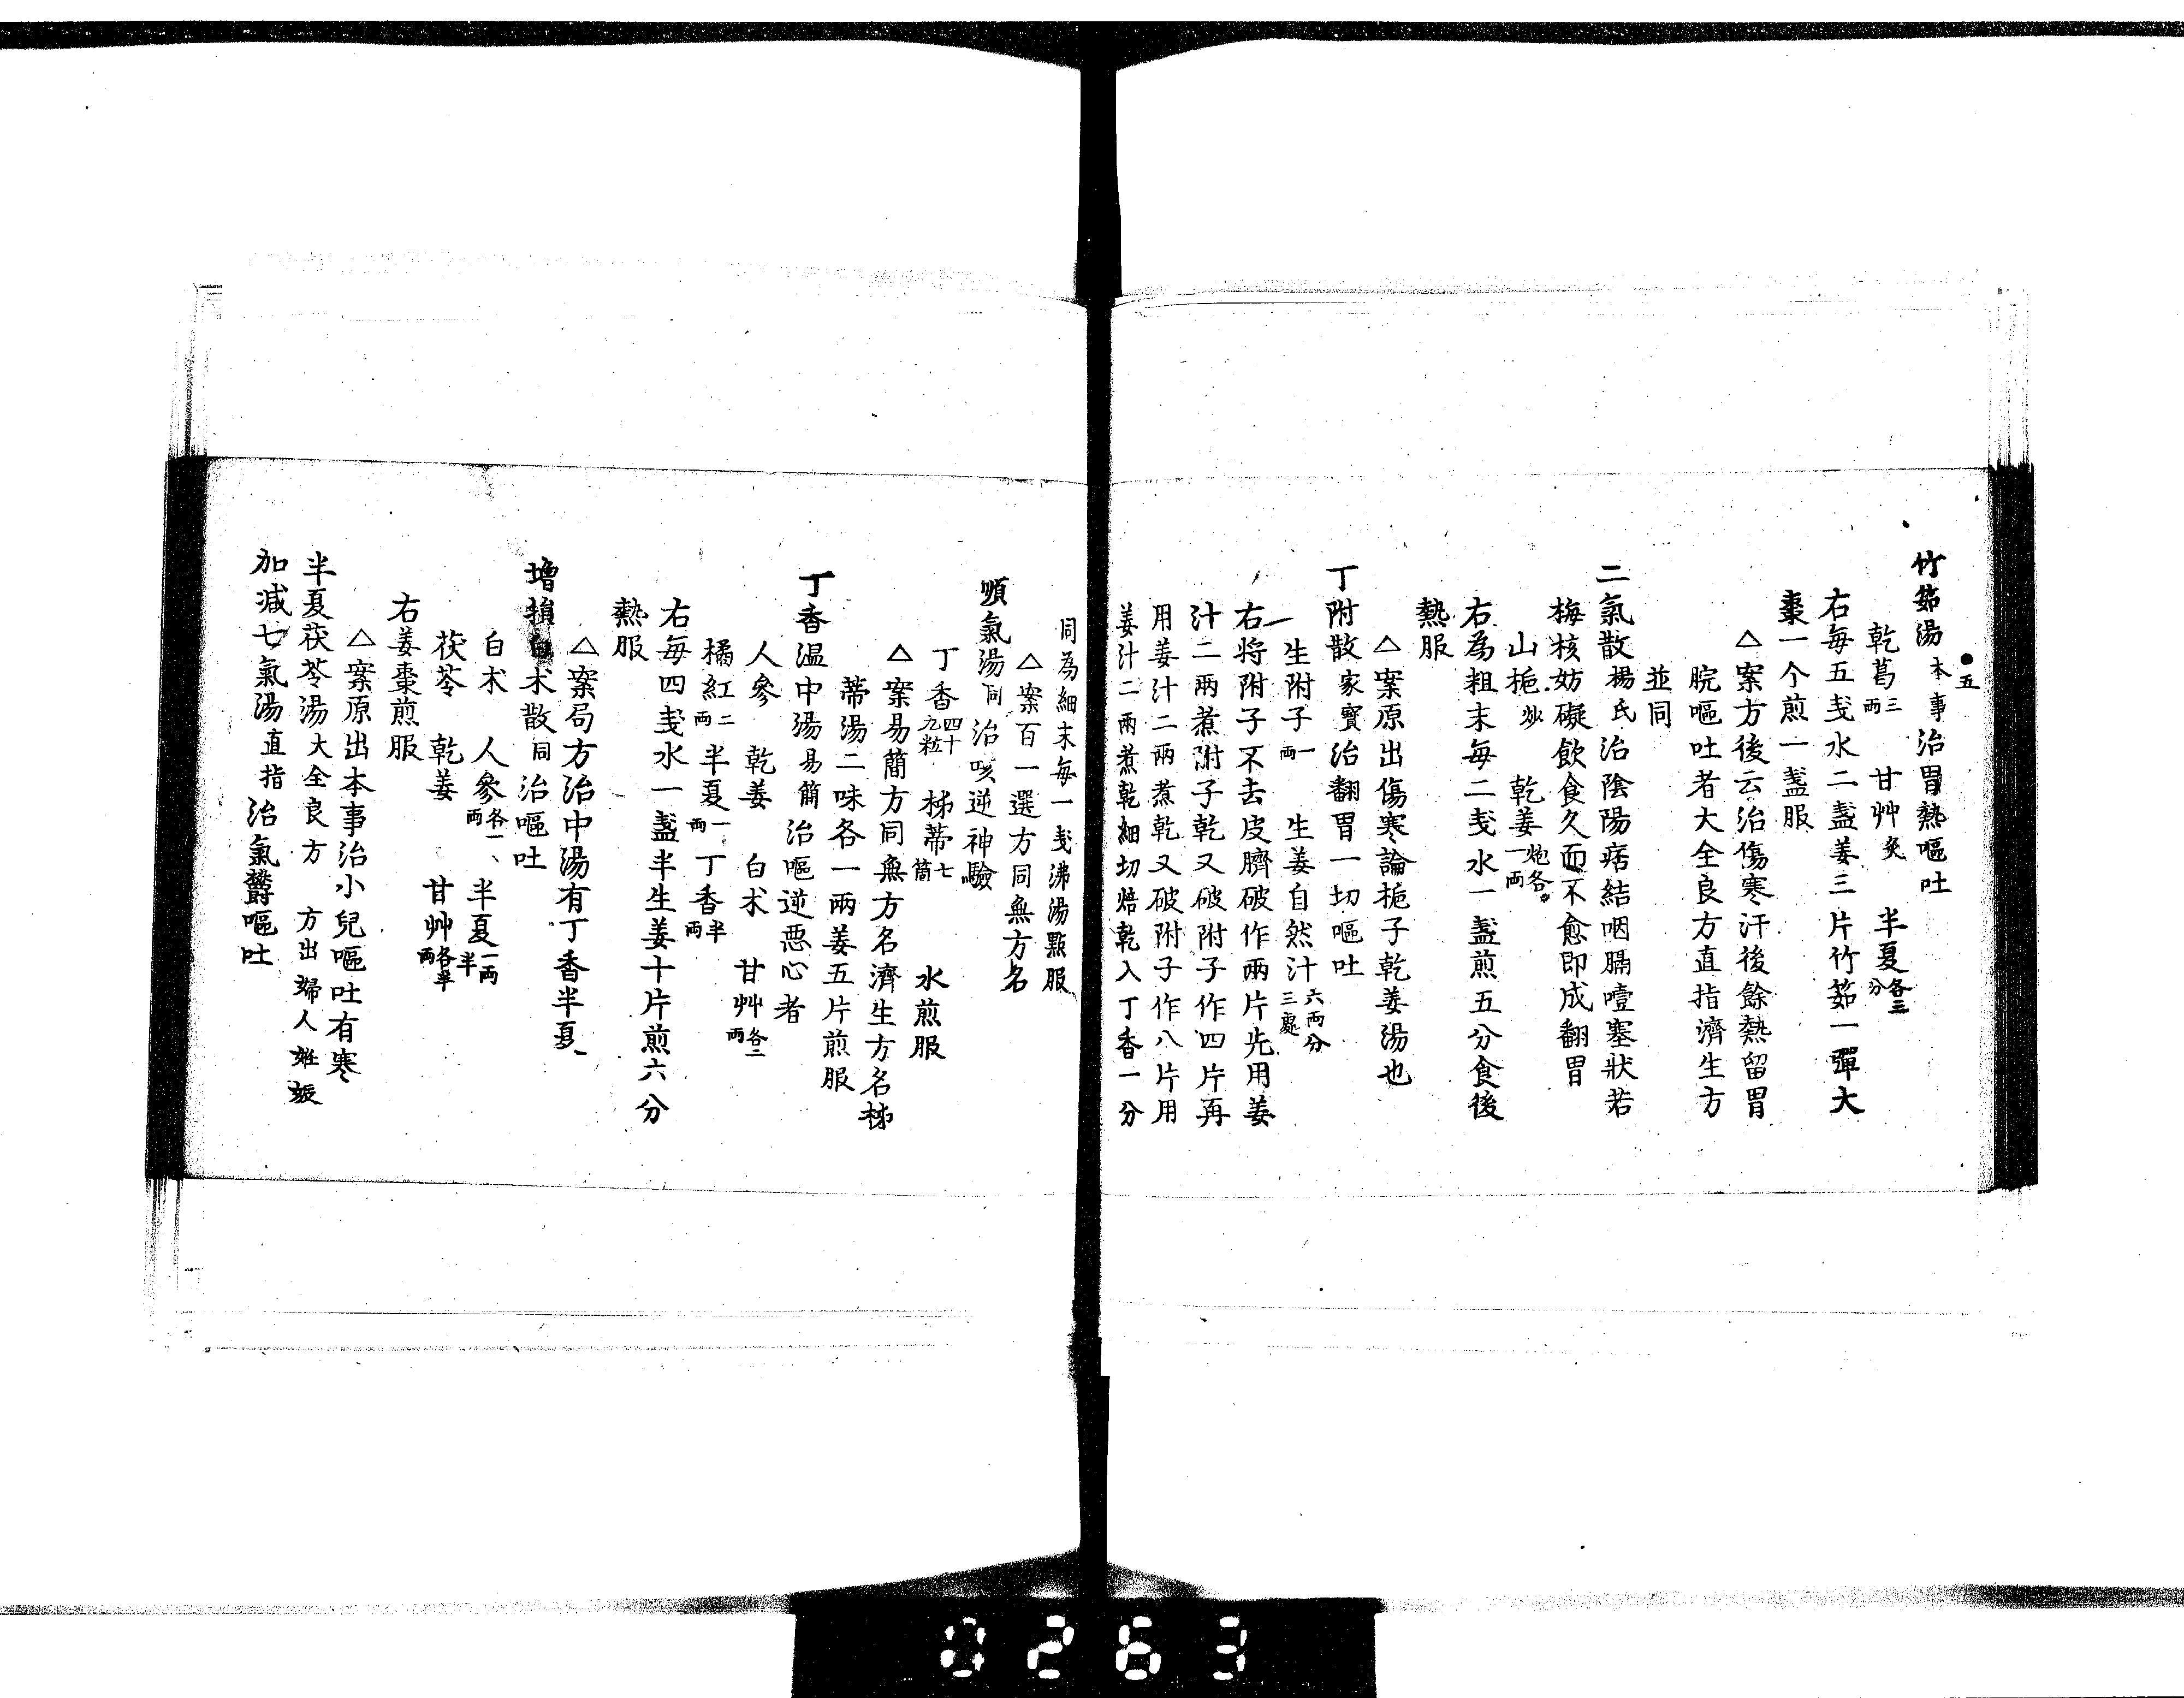 ●五
竹筎湯 本事 治胃熱嘔吐
乾葛三兩 甘艸炙 半夏各三分
右每五戔水二盞姜三片竹茹一彈大
棗一个煎一盞服
△案方後云治傷寒汗後餘熱留胃
脘嘔吐者大全良方直指濟生方
並同
二氣散 楊氏 治陰陽痞結咽膈噎塞狀若
梅核妨礙飲食久而不愈即成翻胃
山梔炒 乾姜炮各一兩
右為粗末每二戔水一盞煎五分食後
熱服
△案原出傷寒論梔子乾姜湯也
丁附散 家寶 治翻胃一切嘔吐
一生附子一兩 生姜自然汁六兩分三處
右將附子不去皮臍破作兩片先用姜
汁二兩煮附子乾又破附子作四片再
用姜汁二兩煮乾又破附子作八片用
姜汁二兩煮乾細切焙乾入丁香一分
同為細末每一戔沸湯點服
△案百一選方同無方名
順氣湯 同 治咳逆神驗
丁香四十九粒 柹蒂七箇 水煎服
△案易簡方同無方名濟生方名柹
蒂湯二味各一兩姜五片煎服
丁香溫中湯 易簡 治嘔逆惡心者
人參 乾姜 白朮 甘艸各二兩
橘紅二兩 半夏一兩 丁香半兩
右每四戔水一盞半生姜十片煎六分
熱服
△案局方治中湯有丁香半夏
增損白朮散 同 治嘔吐
白朮 人參各一兩、半夏一兩半
茯苓 乾姜 甘艸各半兩
右姜棗煎服
△案原出本事治小兒嘔吐有寒
半夏茯苓湯 大全良方 方出婦人姙娠
加減七氣湯 直指 治氣欝嘔吐
0263